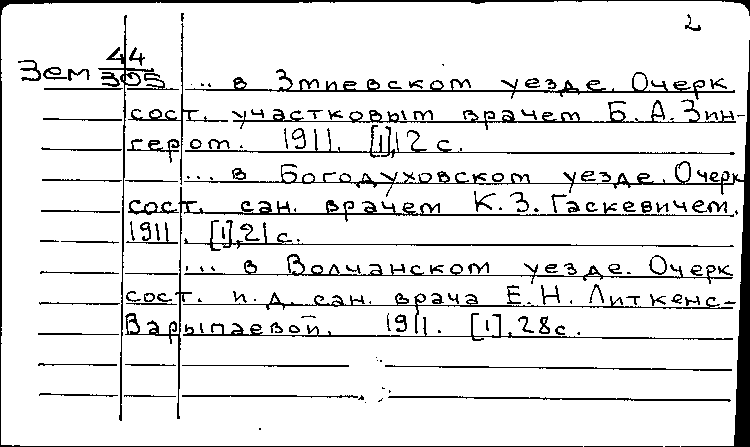 2
Зем 44/305 ... в Змиевском уезде. Очерк
сост. участковым врачем Б. А. Зин-
гером. 1911. [1],12 с.
... в Богодуховском уезде. Очерк
сост. сан. врачем К. З. Гаскевичем.
1911. [1],21 с.
... в Волчанском уезде. Очерк
сост. и. д. сан. врача Е. Н. Литкенс-
Варыпаевой. 1911. [1],28 с.